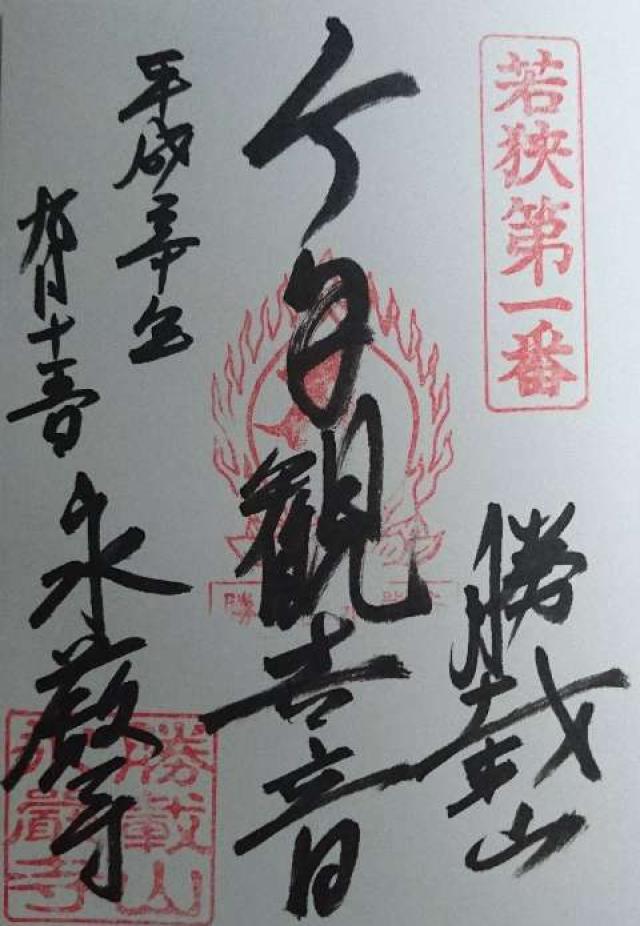 若狭第一番
勝載山
観世音
平成三十年
九月十五日
永厳寺
勝載山
永厳寺